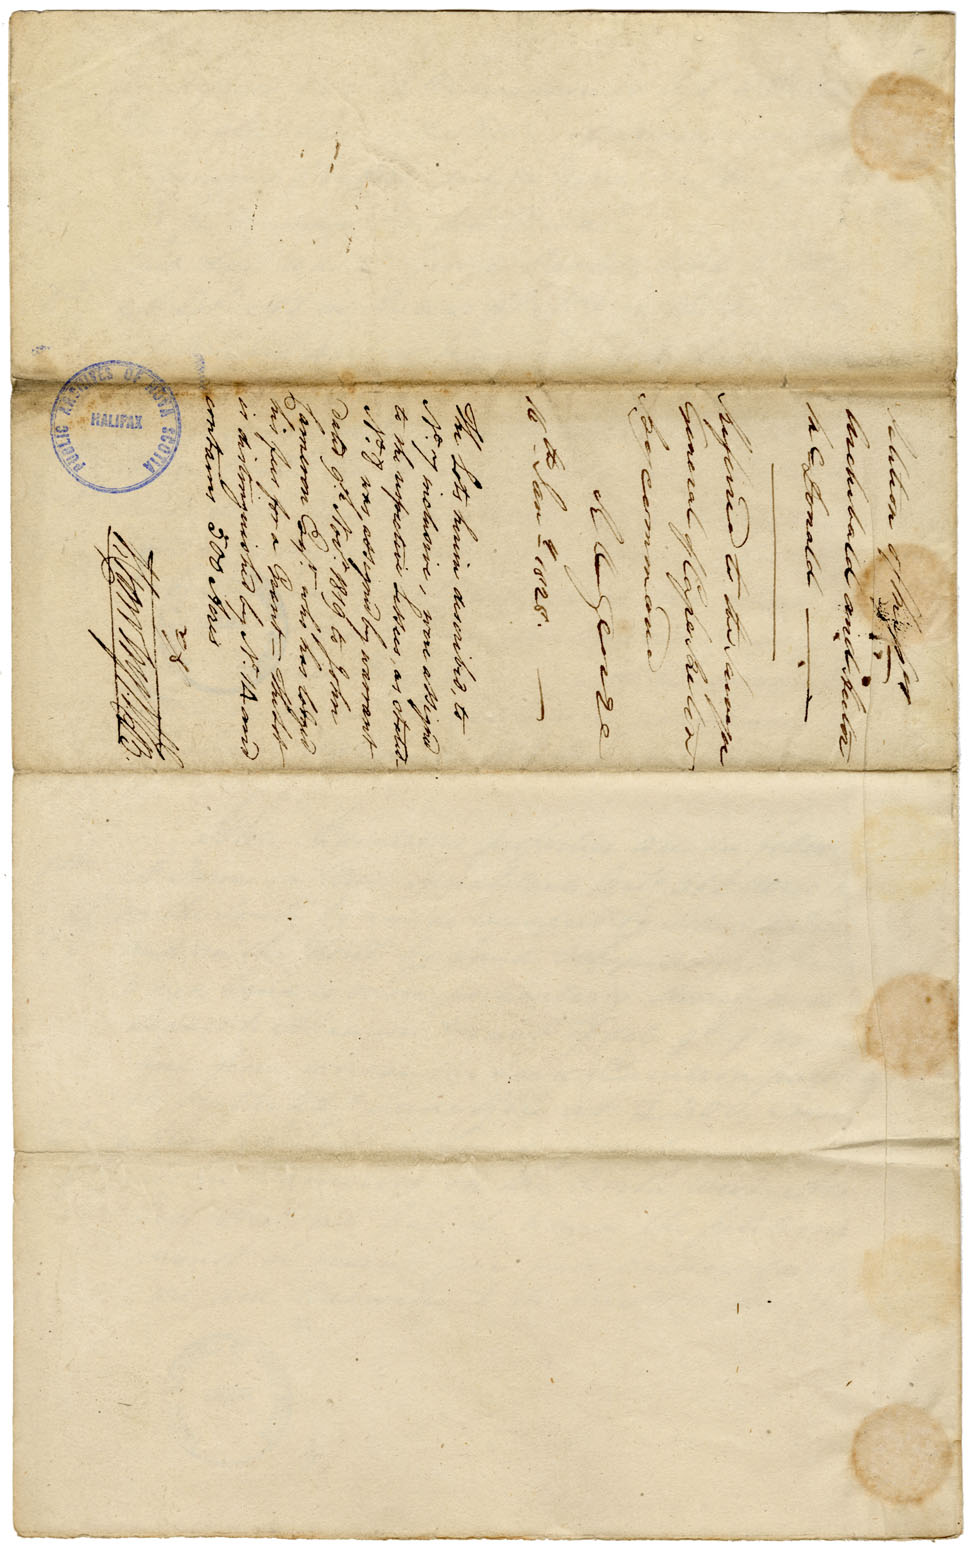 Petition of
Archibald and
McDonald
Referred to the Surveyor
General of Cape Breton
By command
R George
16th Jany 1828.
The Lots herein described, to
No. 7 inclusive, were assigned
to the respective Lessees, as stated
No. 8 was assigned by warrant
dated 9th Novr. 1819 to John
Cameron Esqr. who has lodged
his fees for a Grant — the lot
is distinguished by No. 14 and
contains 500 Acres
PUBLIC ARCHIVES OF NOVA SCOTIA
HALIFAX